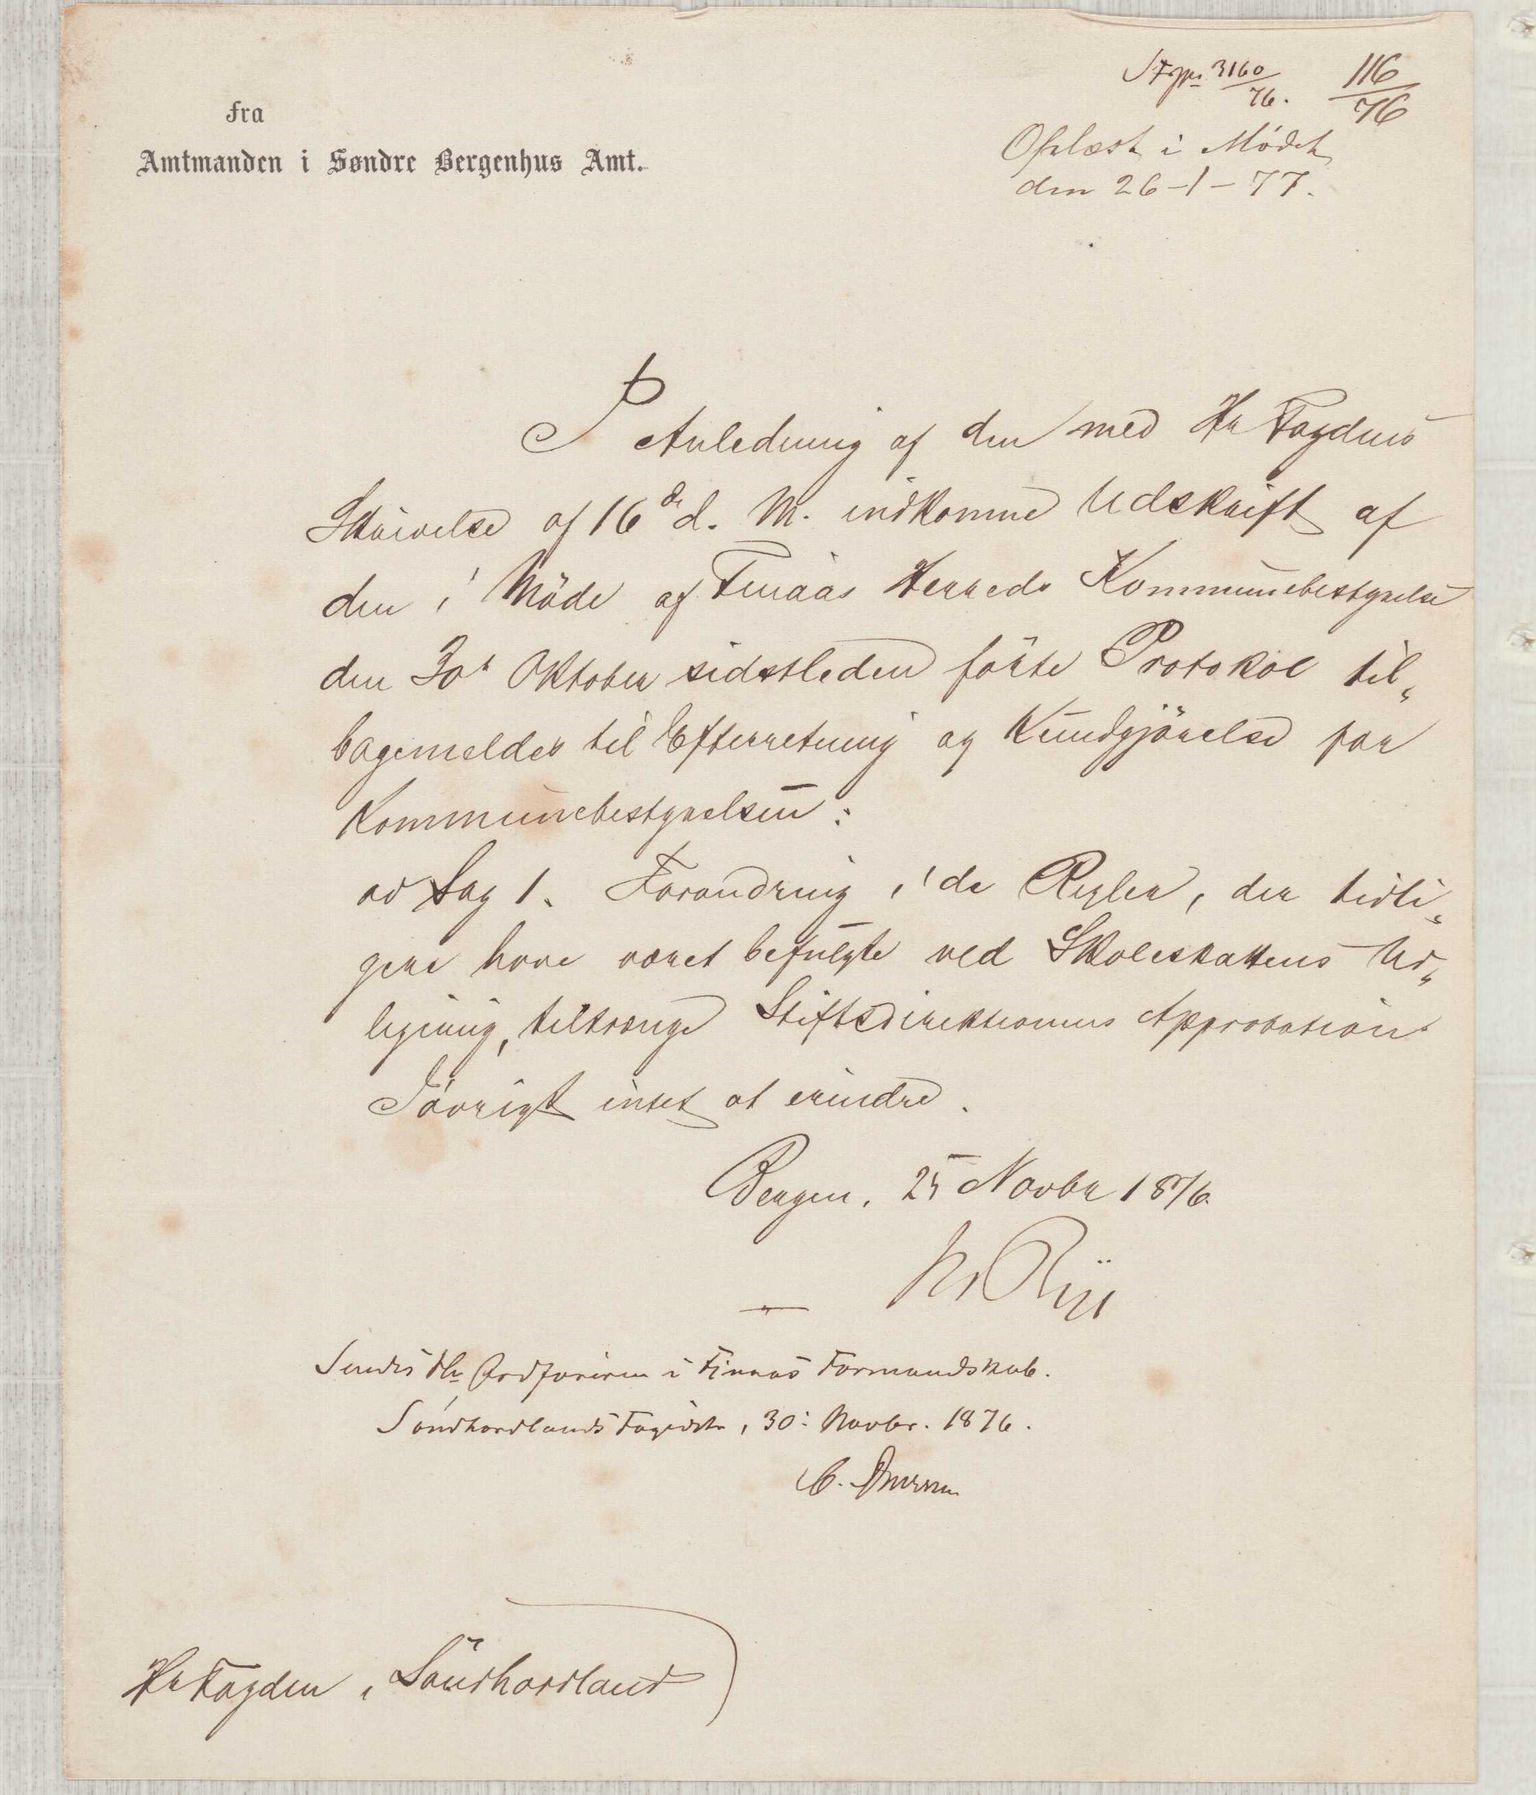 fra
Amtmanden i Søndre Bergenhus Amt.
3160/76.
116/76
Oplæst i Mødet
den 26-1-77.
I Anledning af den med Hr Fogdens
Skrivelse af 16de d. M. indkomne Udskrift af
den i Möde af Finaas Herreds Kommunebestyrelse
den 30t Oktober sidstleden förte Protokol til„
bagemeldes til Efterretning og Kundgjörelse for
Kommunebestyrelsen:
ad Sag 1. Forandring i de Regler, der tidli„
gere have været befulgte ved Skoleskattens Ud„
ligning, tiltrænge Stiftsdirektionens Approbation.
Iövrigt intet at erindre.
Bergen, 25 Novbr 1876.
Sendes Hr Ordföreren i Finnås Formandskab.
Söndhordlands Fogderi, 30: Novbr. 1876.
Hr Fogden i Söndhordland